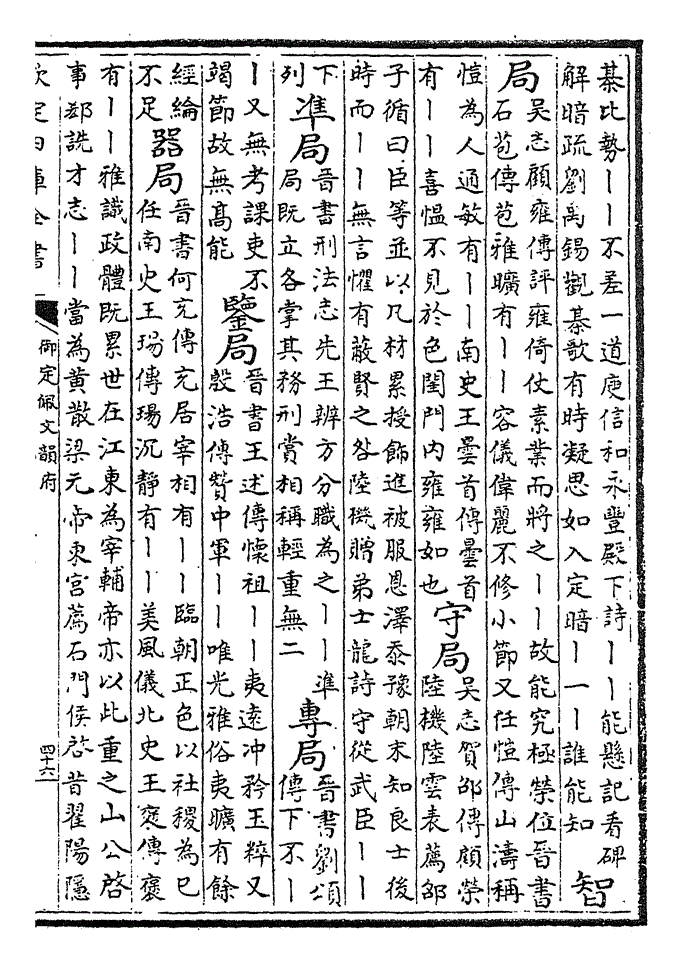 棊比勢丨丨不差一道庾信和永豐殿下詩丨丨能懸記看碑
解暗疏劉禹錫觀棊歌有時凝思如入定暗丨一丨誰能知
智
局
吳志顧雍傳評雍倚仗素業而將之丨丨故能究極榮位晉書
石苞傳苞雅曠有丨丨容儀偉麗不修小節又任愷傳山濤稱
愷為人通敏有丨丨南史王曇首傳曇首
有丨丨喜慍不見於色閨門內雍雍如也
守局
吳志賀邵傳顧榮
陸機陸雲表薦邵
子循曰臣等並以凡材累授飾進被服恩澤忝豫朝末知良士後
時而丨丨無言懼有蔽賢之咎陸機贈弟士龍詩守從武臣丨丨
下
列
准局
晉書刑法志先王辨方分職為之丨丨準
局既立各掌其務刑賞相稱輕重無二
專局
晉書劉頌
傳下不丨
丨又無考課吏不
竭節故無高能
鑒局
晉書王述傳懷祖丨丨夷遠冲矜玉粹又
殷浩傳贊中軍丨丨唯光雅俗夷曠有餘
經綸
不足
器局
晉書何充傳充居宰相有丨丨臨朝正色以社稷為己
任南史王瑒傳瑒沉靜有丨丨美風儀北史王褒傳褒
有丨丨雅識政體既累世在江東為宰輔帝亦以此重之山公啓
事郄詵才志丨丨當為黃散梁元帝東宮薦石門侯啓昔翟陽隱
欽定四庫全書
御定佩文韻府
四十六